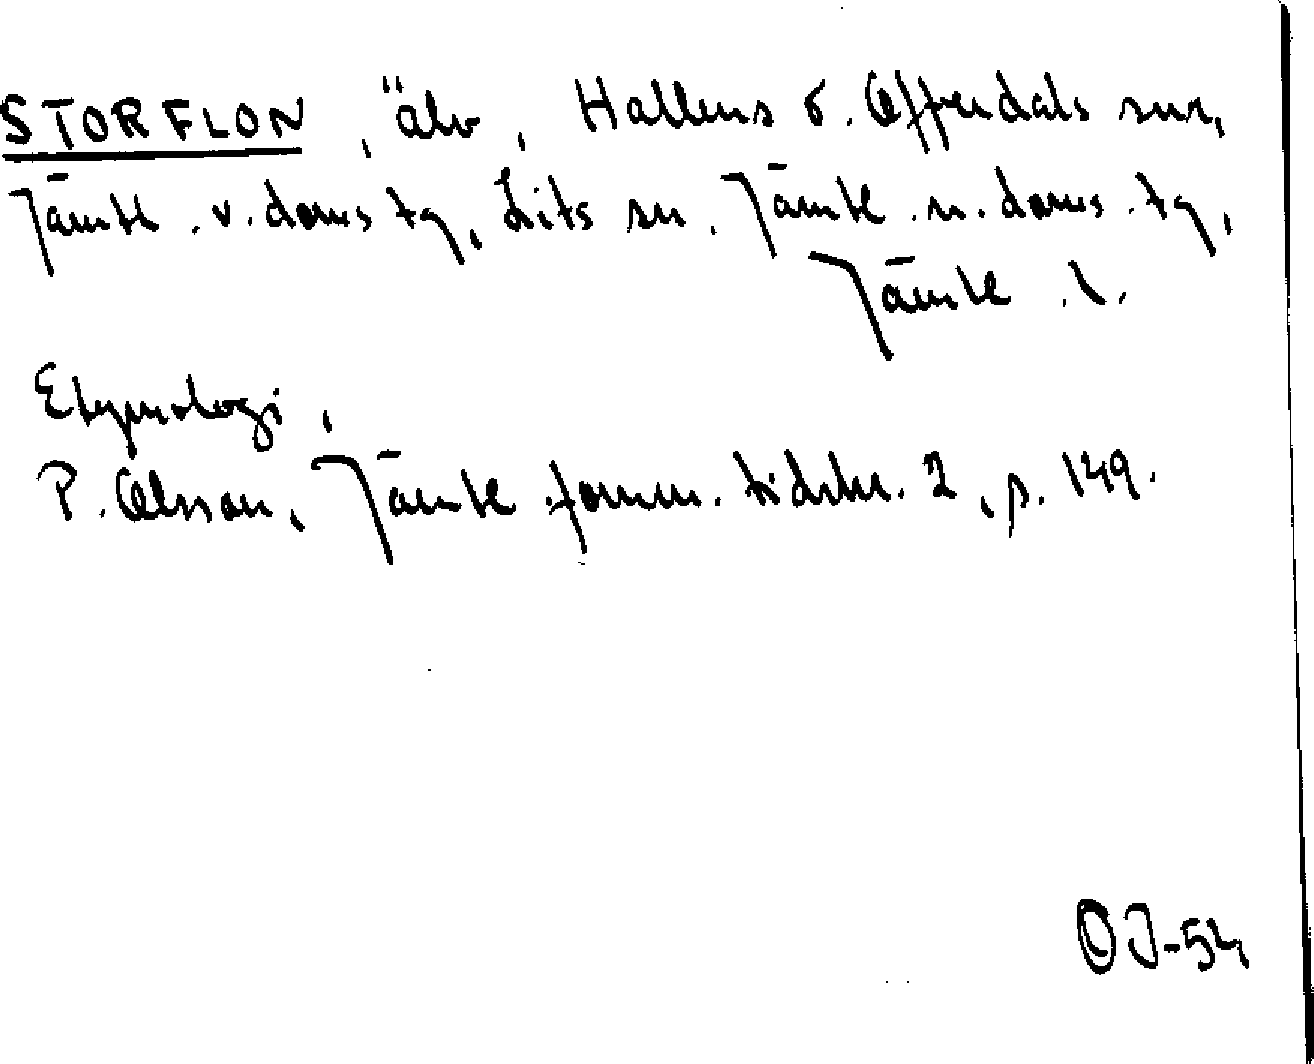 STORFLON, älv, Hallens o. Offerdals snr,
Jämtl. v. doms tg, Lits sn, Jämtl. n. doms. tg,
Jämtl. l.
Etymologi,
P. Olsson, Jämtl. fornm. tidskr. 2, p. 149.
OJ-54